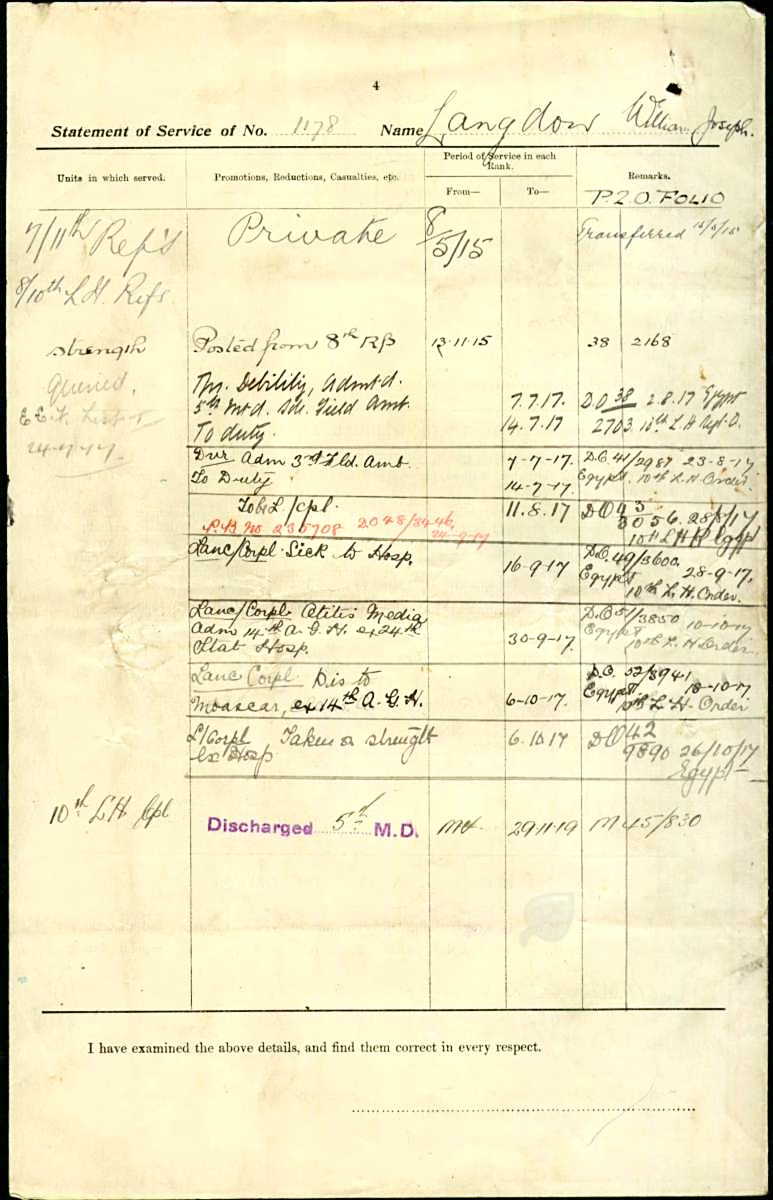 4
Statement of Service of No. 1178 Name Langdon William Joseph.
Units in which served. Promotions, Reductions, Casualties, etc. Period of Service in each Rank. From— To— Remarks.
P.2.O. FOLIO
7/11th Ref's Private 8/5/15 Transferred
8/10th L.H. Refs.
strength Posted from 8th Rfs 13.11.15 38 2168
Queried. Debility, Admt d. 7.7.17. D.O 38 2.8.17 Egypt
5th Mtd. Field Amb.
24-9-17 To duty. 14.7.17 2703 10th L.H Rgt. O.
Dvr Adm 3rd Fld. Amb. 7-7-17. D.O. 41/2987 23-8-17
To Duty 14-7-17. Egypt. 10th L.H Order.
To be L/Cpl. 11.8.17 DO 43
P.B. No 235708 DO 48/3446 24-9-17 3056. 28/8/17
10th L H R Egypt
Lanc/Corpl. Sick to Hosp. 16-9-17 D.O. 49/3600. 28-9-17.
Egypt 10th L. H. Order.
Lanc/Corpl. Otitis Media D.O 51/3850 10-10-17
Adm 14th A.G.H. ex 24th Egypt
Stat Hosp. 30-9-17. 10th L. H Order.
Lanc Corpl Dis to D.O. 52/3941
Moascar, ex 14th A.G.H. 6-10-17. Egypt 18-10-17
10th L.H. Order
L/Corpl Taken on strenght 6.10.17 DO 42
ex Hosp 9890 26/10/17
Egypt
10th LH Cpl Discharged 5th M.D. 29.11.19 M 45/830
I have examined the above details, and find them correct in every respect.